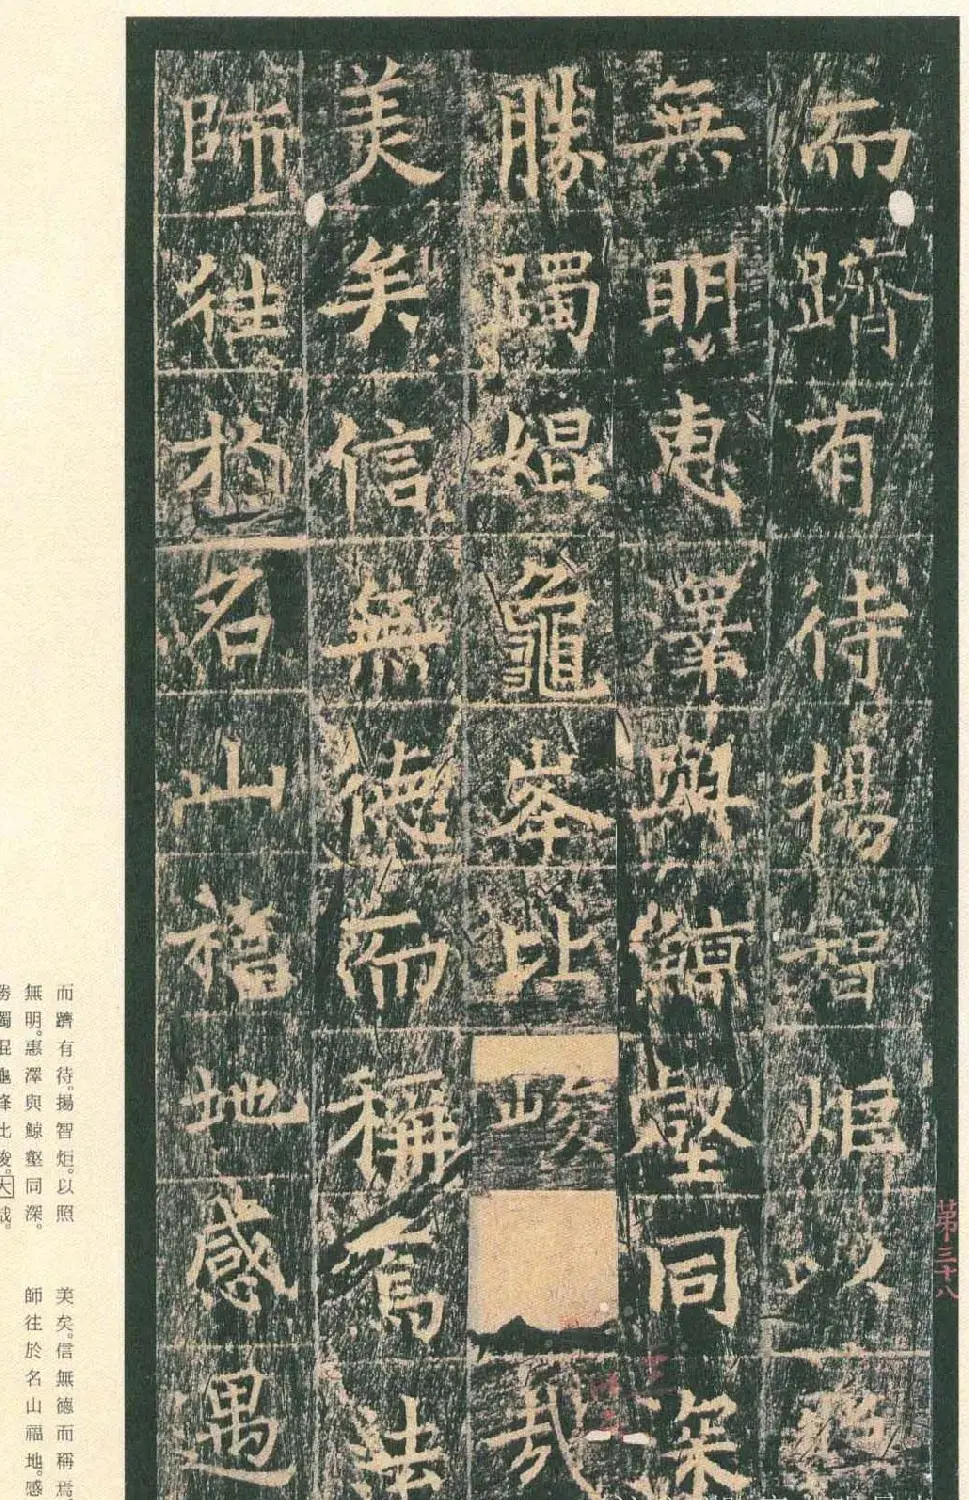 而躋有待揚智炬以照
無明惠澤與鯨壑同深
勝躅婫龜峯比峻哉
美矣信無德而稱焉法
師往於名山福地感遇
第三十八
而躋有待。揚智炬。以照
無明。惠澤與鯨壑同深。
美矣。信無德而稱焉
師往於名山福地。感